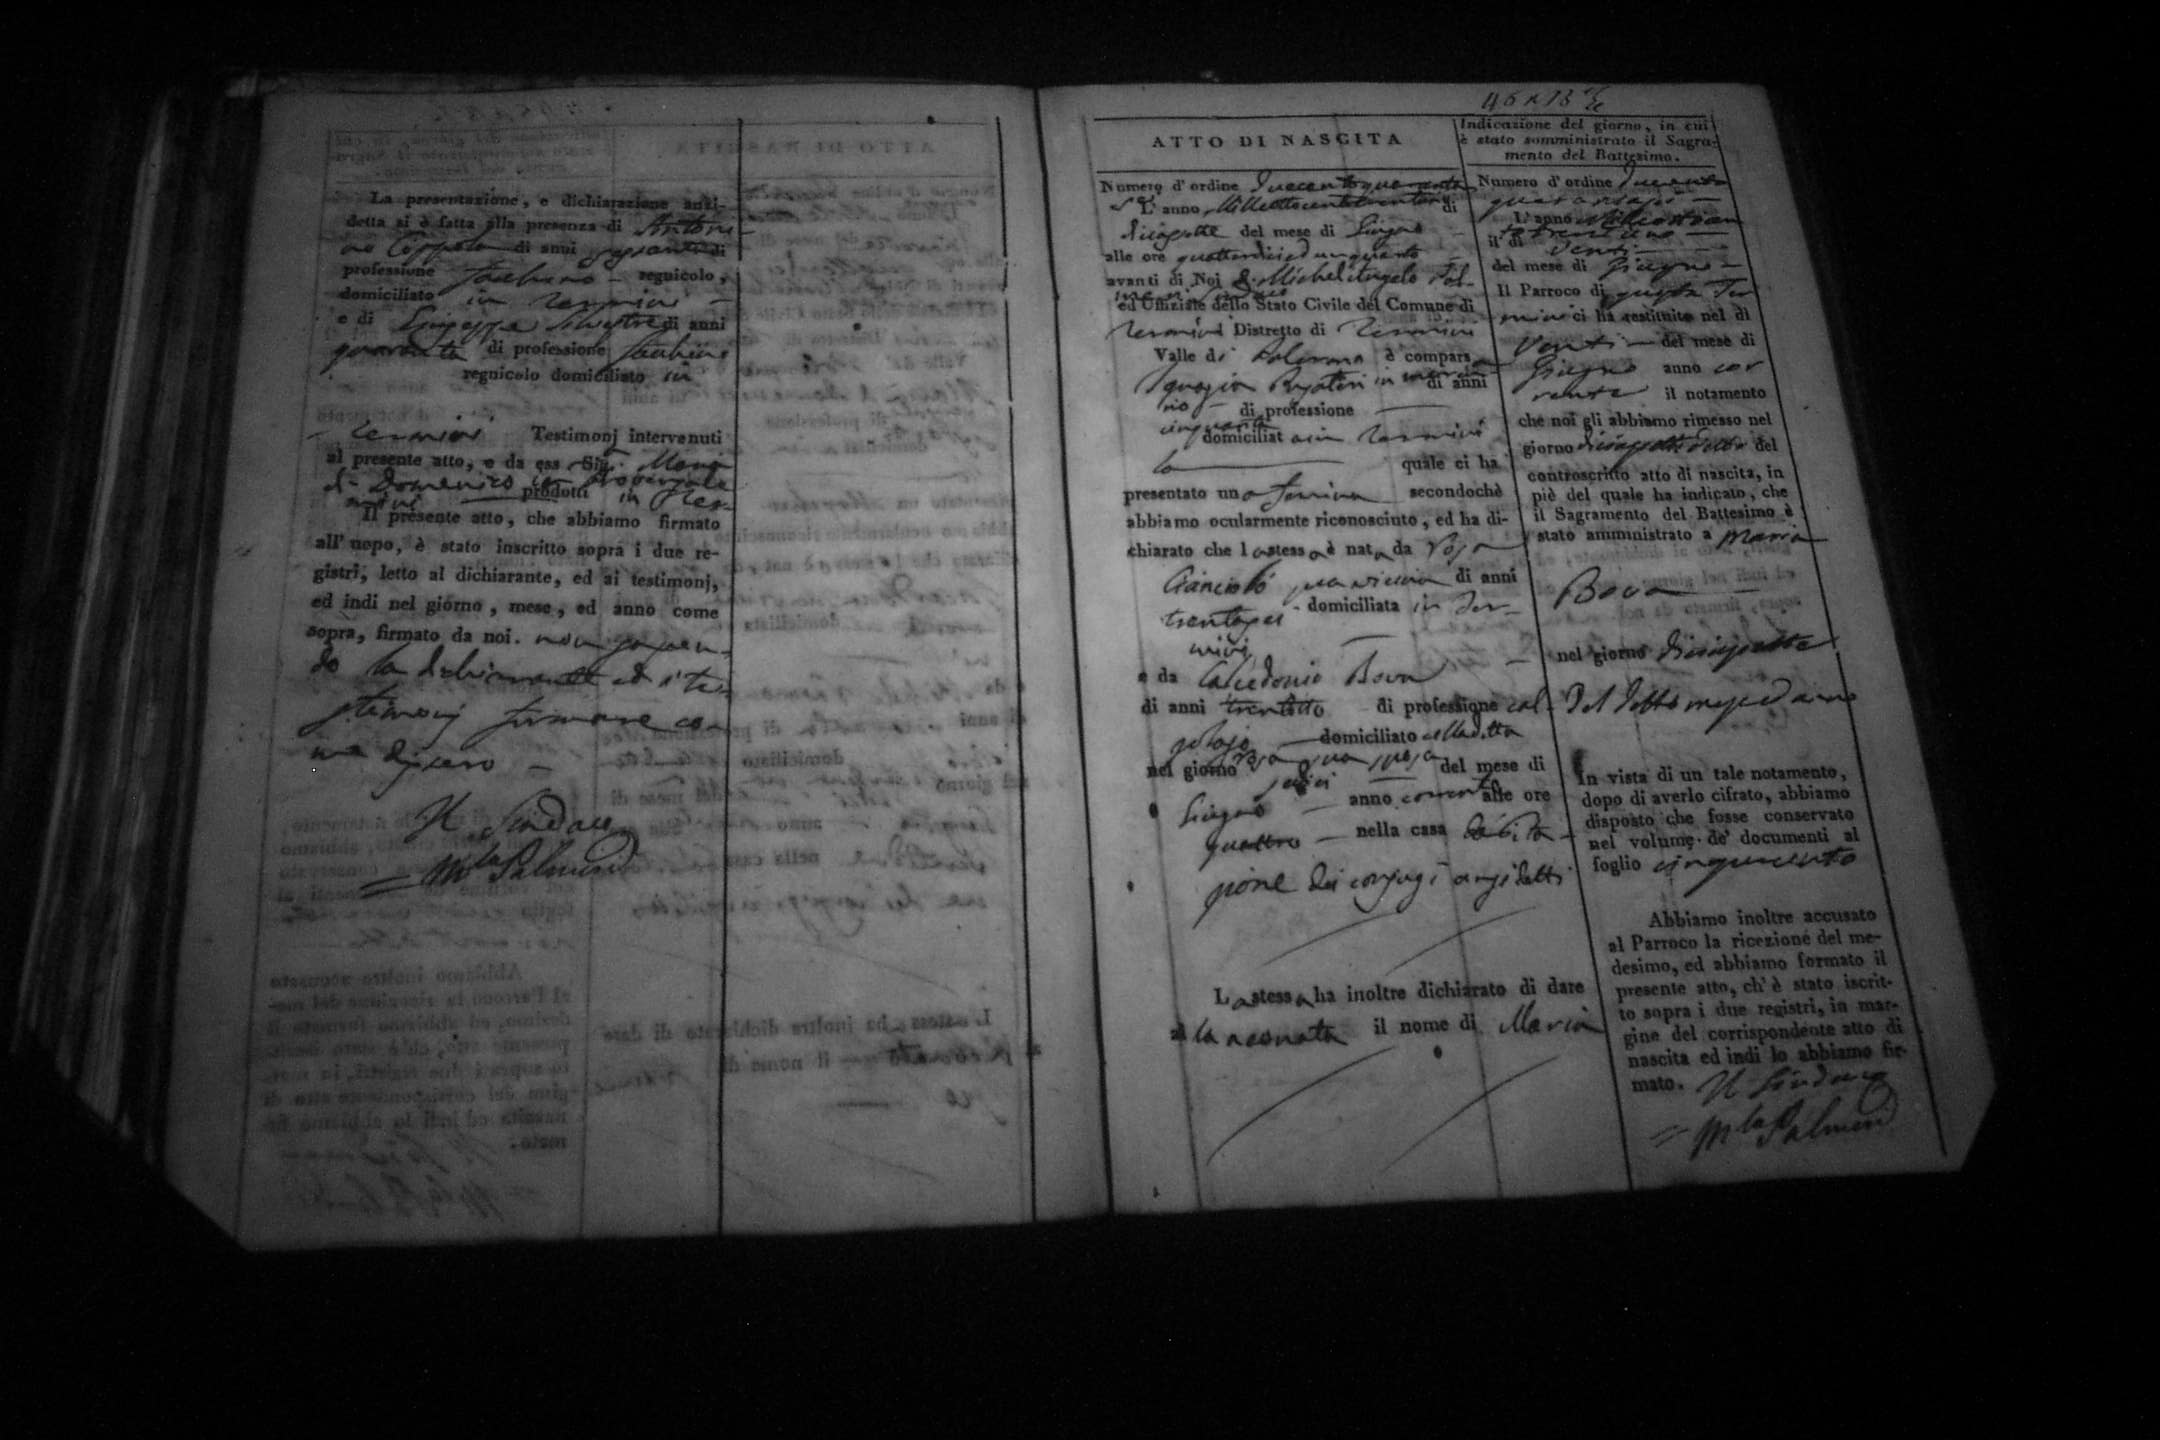 La presentazione, e dichiarazione anzi-
detta si è fatta alla presenza di Antoni-
no Coppola di anni sessanta di
professione facchino regnicolo,
domiciliato in Termini
e di Giuseppe Silvestre di anni
quaranta di professione facchino
regnicolo domiciliato in
Termini Testimonj intervenuti
al presente atto, e da ess Sig. Maria
di Domenico in
prodotti in Ter-
mini
Il presente atto, che abbiamo firmato
all' uopo, è stato inscritto sopra i due re-
gistri, letto al dichiarante, ed ai testimonj,
ed indi nel giorno, mese, ed anno come
sopra, firmato da noi. non sapen-
do la dichiarante ed i te-
stimonj firmare co-
me dissero
Il Sindaco
Palmeri
46
ATTO DI NASCITA
Numero d' ordine duecentoquaranta
sei
L' anno Milleottocentotrentuno di
diciassette del mese di Giugno
alle ore quattordici ed un quarto
avanti di Noi D. Michel'Angelo Pal-
meri Sindaco
ed Uffiziale dello Stato Civile del Comune di
Termini Distretto di Termini
Valle di Palermo è comparsa
Ignazia in
di anni
di professione
cinquanta
domiciliata in Termini
la quale ci ha
presentato una femina secondochè
abbiamo ocularmente riconosciuto, ed ha di-
chiarato che la stessa è nata da Rosa
Cianciolo sua vicina di anni
trentasei domiciliata in Ter-
mini
e da Calcedonio Bova
di anni trentotto di professione cal-
zolajo domiciliato colla detta
Rosa sua sposa
nel giorno sedici del mese di
Giugno anno corrente alle ore
quattro nella casa di abita-
zione dei conjugi anzidetti
La stessa ha inoltre dichiarato di dare
alla neonata il nome di Maria
Indicazione del giorno, in cui
è stato somministrato il Sagra-
mento del Battesimo.
Numero d' ordine duecento
quarantasei
L' anno Milleottocen
totrentuno
il dì venti
del mese di Giugno
Il Parroco di questa Ter
mini ci ha restituito nel dì
venti del mese di
Giugno anno cor
rente il notamento
che noi gli abbiamo rimesso nel
giorno diciassette detto del
controscritto atto di nascita, in
piè del quale ha indicato, che
il Sagramento del Battesimo è
stato amministrato a Maria
Bova
nel giorno diciassette
del detto mese ed anno
In vista di un tale notamento,
dopo di averlo cifrato, abbiamo
disposto che fosse conservato
nel volume de' documenti al
foglio cinquecento
Abbiamo inoltre accusato
al Parroco la ricezione del me-
desimo, ed abbiamo formato il
presente atto, ch' è stato iscrit-
to sopra i due registri, in mar-
gine del corrispondente atto di
nascita ed indi lo abbiamo fir-
mato. Il Sindaco
Palmeri